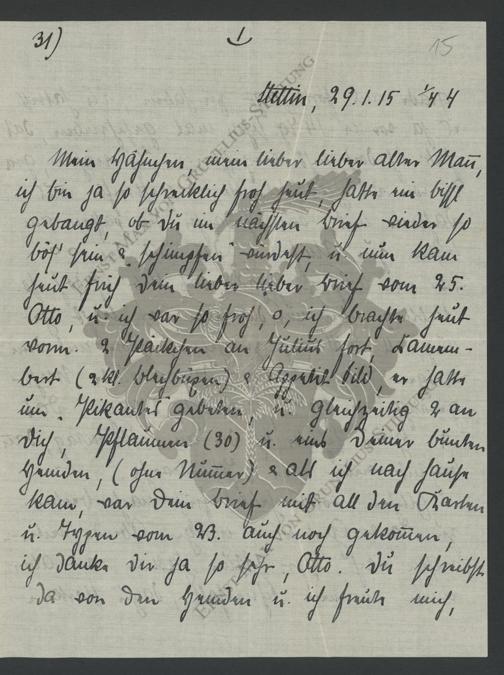 31)
I
15
Stettin, 29.1.15 1/4 4
Mein Hähnchen, mein lieber lieber alter Mann,
ich bin ja so schrecklich froh heut, hatte ein bissl
gebangt, ob Du im nächsten Brief wieder so
bös sein & schimpfen würdest, u. nun kam
heut früh Dein lieber lieber Brief vom 25.
Otto, u. ich war so froh, o, ich brachte heut
vorm. 2 Päckchen an Julius fort, Camem-
bert (2 kl. ) & Appetit Sild, er hatte
um Pikantes gebeten, u. gleichzeitig 2 an
Dich, Pflaumen (30) u. eins Deiner bunten
Hemden, (ohne Nummer) & als ich nach Hause
kam, war Dein Brief mit all den Karten
u. Typen vom 23. auch noch gekommen,
ich danke Dir ja so sehr, Otto. Du schreibst
da von den Hemden u. ich freute mich,
VON CORNELIUS-STIFTUNG